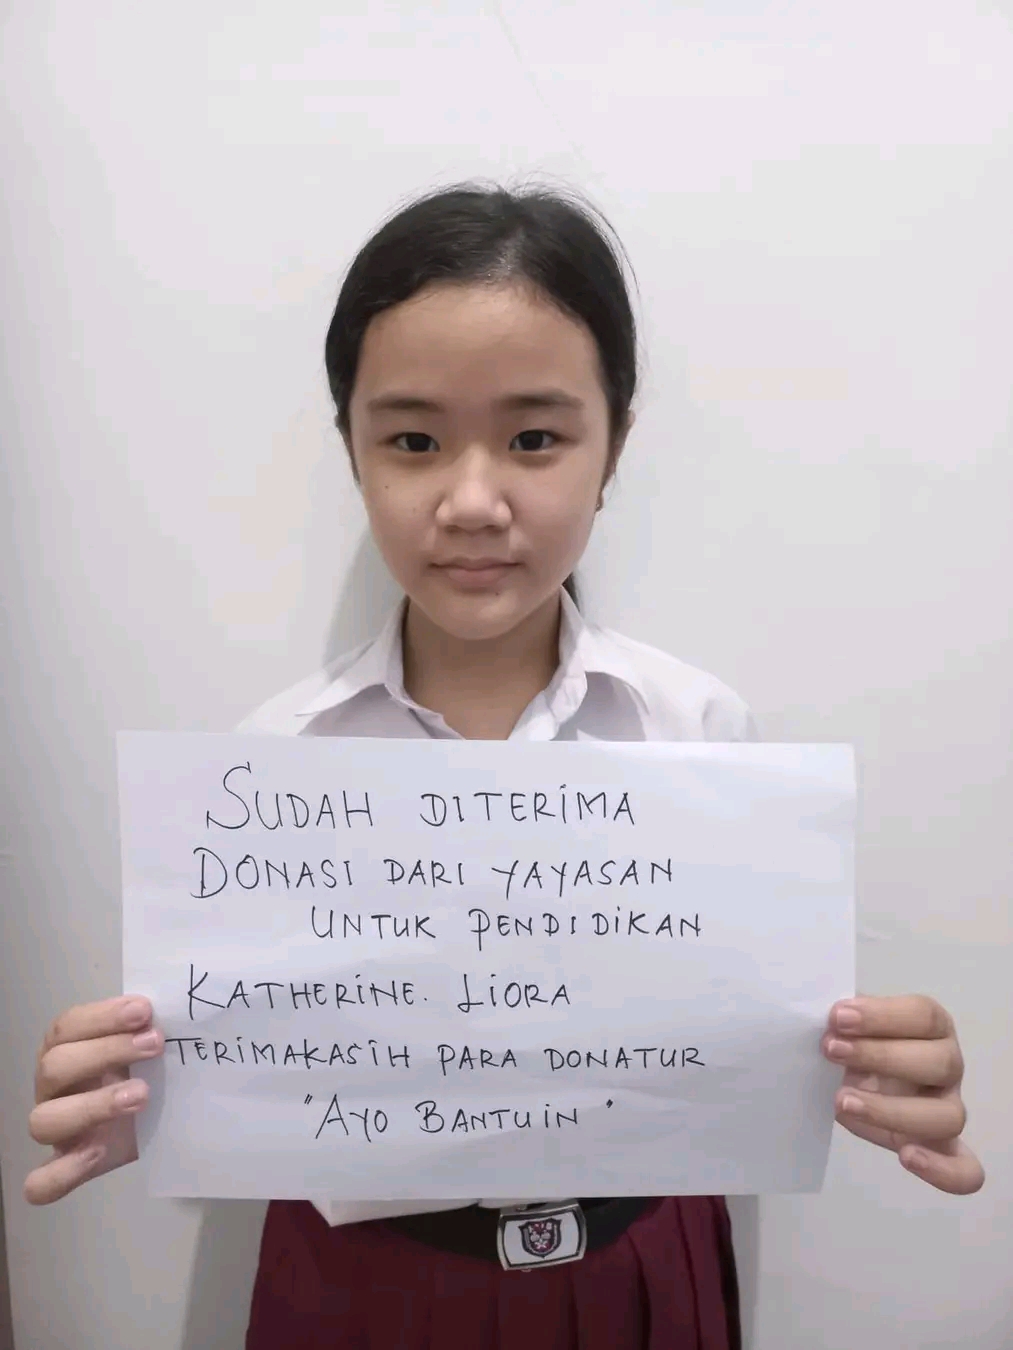 SUDAH DITERIMA
DONASI DARI YAYASAN
UNTUK PENDIDIKAN
KATHERINE. LIORA
TERIMAKASIH PARA DONATUR
"AYO BANTUIN"